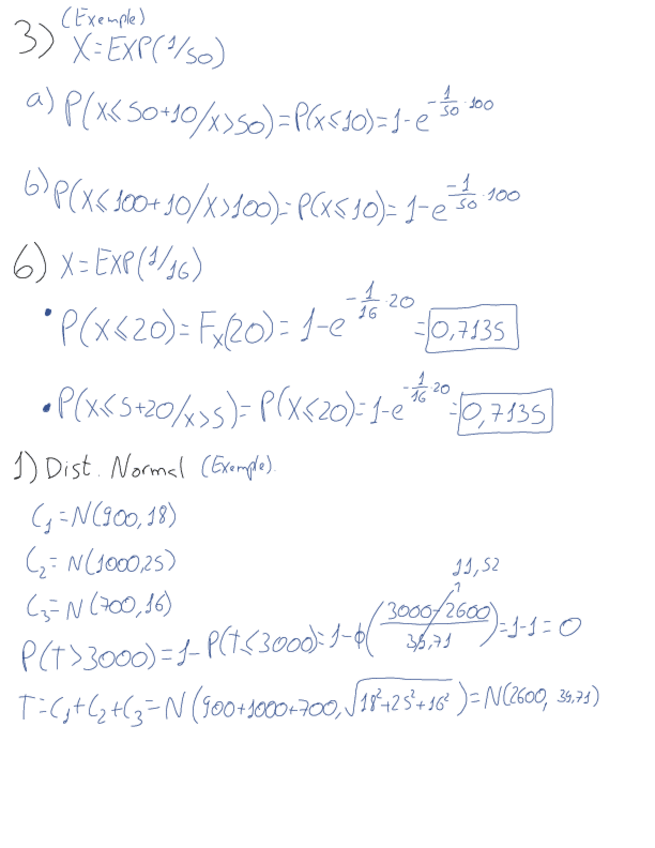 (Exemple)
3) X=EXP(1/50)
a) P(X≤50+10/X>50)=P(X≤10)=1-e^{-1/50·100}
b) P(X≤100+10/X>100)=P(X≤10)=1-e^{-1/50·100}
6) X=EXP(1/16)
• P(X≤20)=F_X(20)=1-e^{-1/16·20}=0,7135
• P(X≤5+20/X>5)=P(X≤20)=1-e^{-1/16·20}=0,7135
1) Dist. Normal (Exemple).
C₁=N(900,18)
C₂=N(1000,25)
11,52
C₃=N(700,16)
P(T>3000)=1-P(T≤3000)=1-ϕ((3000-2600)/34,71)=1-1=0
T=C₁+C₂+C₃=N(900+1000+700,√(18²+25²+16²))=N(2600, 34,71)